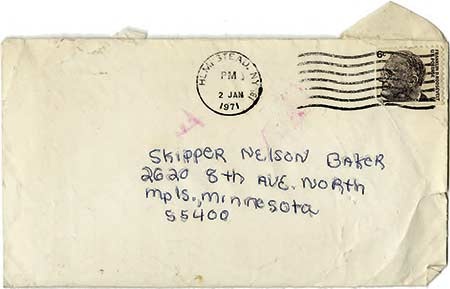 HEMPSTEAD, NY
PM
2 JAN
1971
6¢
FRANKLIN D. ROOSEVELT
Skipper Nelson Baker
2620 8th Ave. North
Mpls., Minnesota
55400